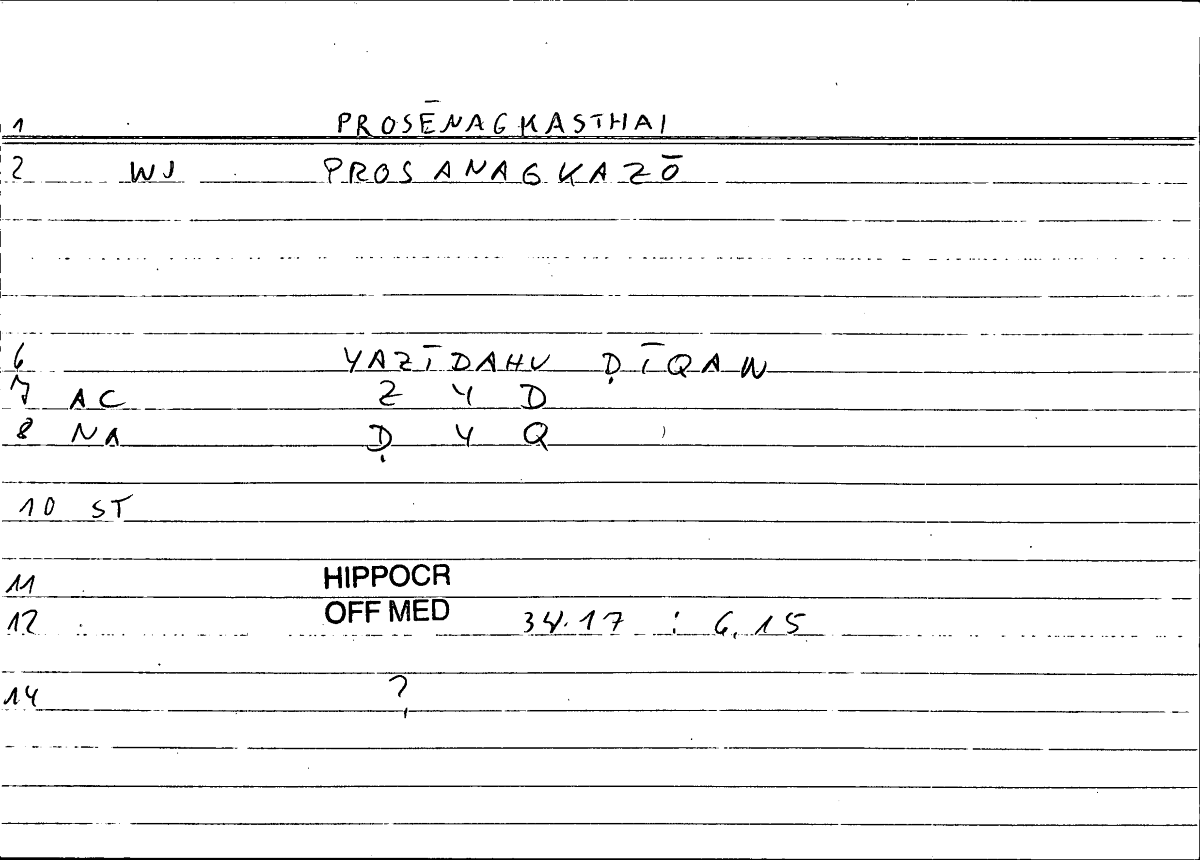 1 PROSĒNAGKASTHAI
2 WJ PROSANAGKAZŌ
6 YAZĪDAHU ḌĪQAN
7 AC Z Y D
8 NA Ḍ Y Q
10 ST
11 HIPPOCR
12 OFF MED 34.17 : 6,15
14 ?